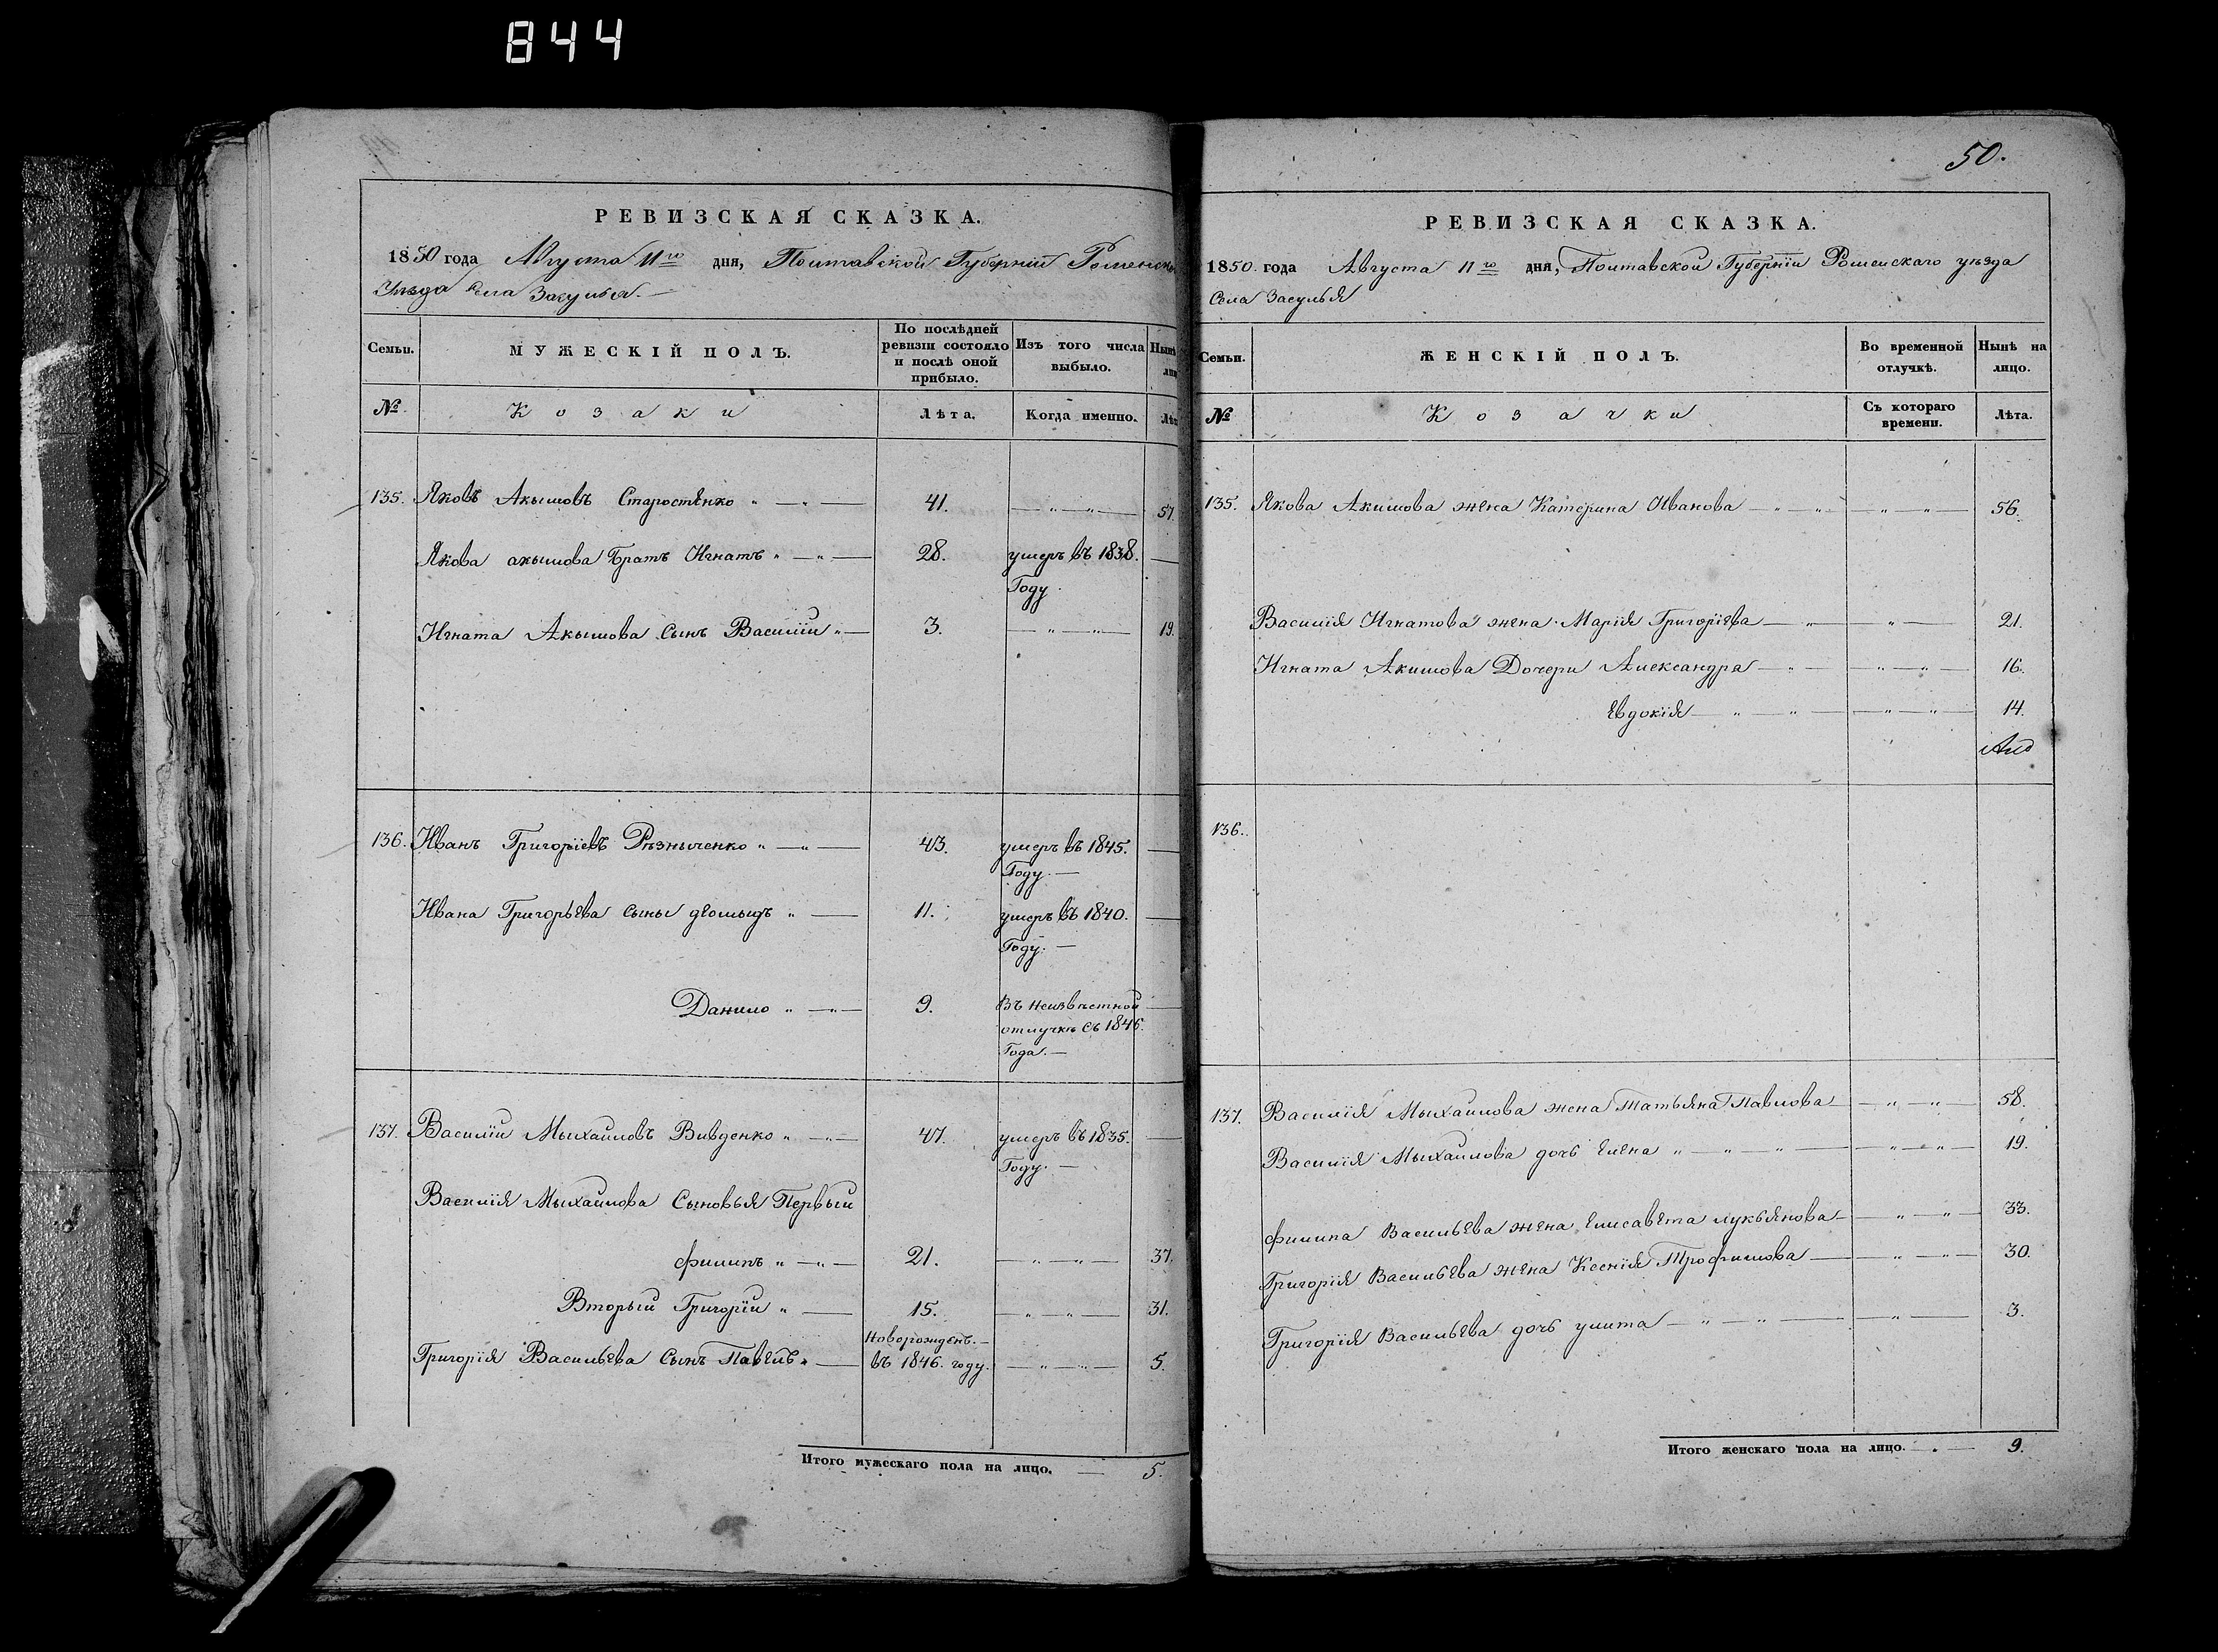 844
РЕВИЗСКАЯ СКАЗКА.
1850 года Августа 11го дня, Полтавской Губерніи Роменско
Уѣзда Села Засулья.
Семьи. МУЖЕСКІЙ ПОЛЪ. По послѣдней ревизіи состояло и послѣ оной прибыло. Изъ того числа выбыло. Нынѣ
№ Козаки Лѣта. Когда именно.
135. Яковъ Акымовъ Старостенко 41. 57.
Якова акымова Братъ Игнатъ 28. умеръ въ 1838.
Году
Игната Акымова Сынъ Василіи 3. 19.
136. Иванъ Григоріевъ Рѣзныченко 43. умеръ въ 1845.
Году.
Ивана Григорьева сыны деомыдъ 11. умеръ въ 1840.
Году.
Данило 9. Въ неизвѣстной
отлучкѣ съ 1846.
Года.
137. Василіи Мыхаиловъ Вивденко 47. умеръ въ 1835.
Году.
Василія Мыхаилова Сыновья Первыи
филипъ 21. 37.
Вторыи Григоріи 15. 31.
Новорожденъ.
Григорія Васильева Сынъ Павелъ въ 1846. году. 5.
Итого мужескаго пола на лицо. 5.
50.
РЕВИЗСКАЯ СКАЗКА.
1850. года Августа 11го дня, Полтавской Губерніи Роменскаго уѣзда
Села Засулья
Семьи. ЖЕНСКІЙ ПОЛЪ. Во временной отлучкѣ. Нынѣ на лицо.
№ Козачки Съ котораго времени. Лѣта.
135. Якова Акимова жена Катерина Иванова 56.
Василія Игнатова жена Марія Григоріева 21.
Игната Акимова Дочери Александра 16.
Евдокія 14.
136.
137. Василія Мыхаилова жена Татьяна Павлова 58.
Василія Мыхаилова дочь Елена 19.
филипа Васильева жена Елисавета лукьянова 33.
Григорія Васильева жена Ксенія Трофимова 30.
Григорія Васильева дочь улита 3.
Итого женскаго пола на лицо. 9.